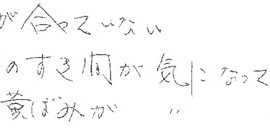 が合っていない
のすき間が気になって
黄ばみが 〃